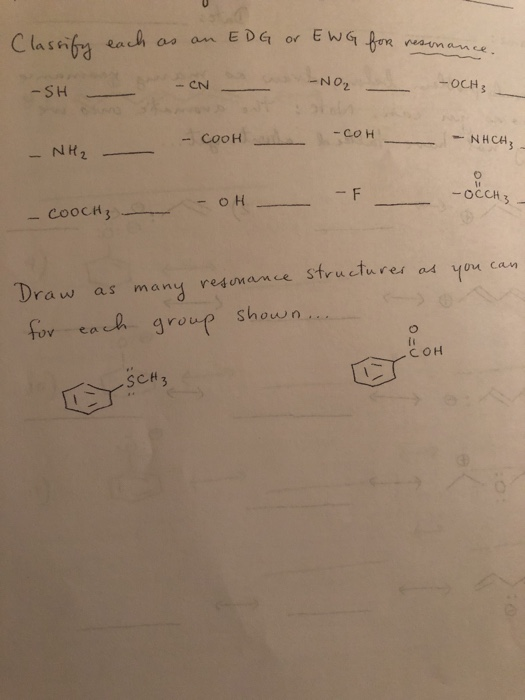 Classify each as an EDG or EWG for resonance.
-SH ____ -CN ____ -NO2 ____ -OCH3
-NH2 ____ -COOH ____ -COH ____ -NHCH3
-COOCH3 ____ -OH ____ -F ____ -OCCH3
O
Draw as many resonance structures as you can
for each group shown...
SCH3
O
COH